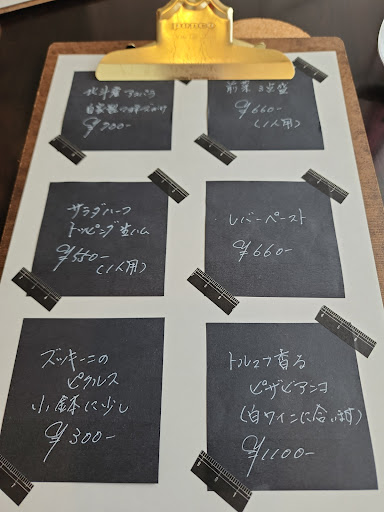 前菜3点盛
¥660-
(1人用)
サラダハーフ
トッピング生ハム
¥550-
(1人用)
レバーペースト
¥660-
ズッキーニの
ピクルス
小鉢に少し
¥300-
トリュフ香る
ピザビアンコ
(白ワインに合います)
¥1100-